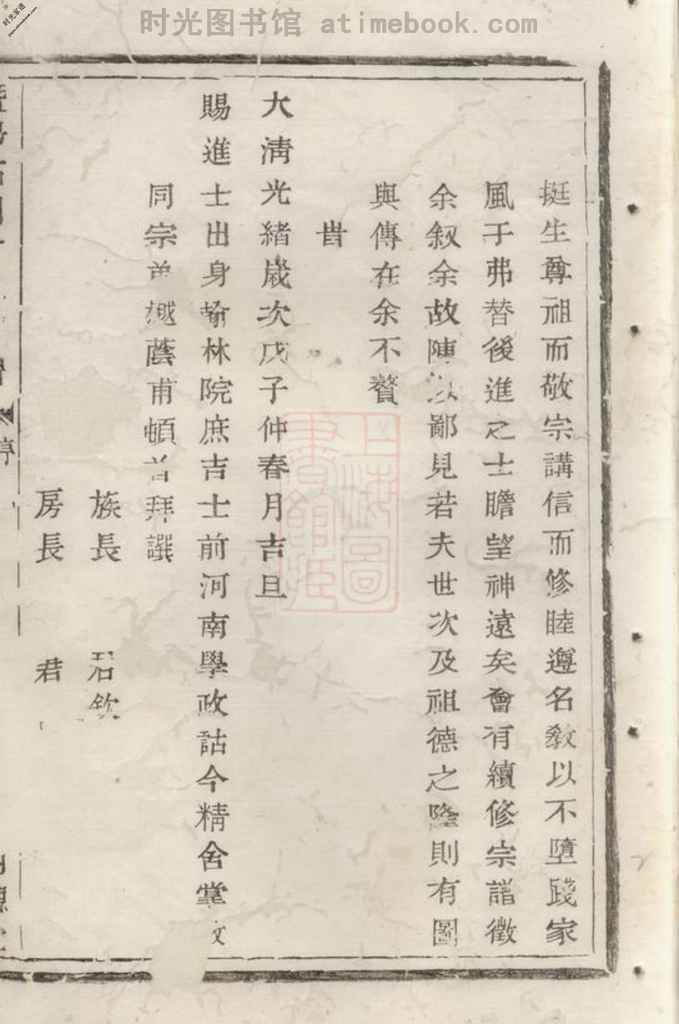 时光图书馆 atimebook.com
挺生尊祖而敬宗講信而修睦遵名敎以不墮踐家
風于弗替後進之士瞻望神遠矣會有續修宗譜徵
余叙余故陳以鄙見若夫世次及祖德之隆則有圖
與傳在余不贅
旹
大淸光緖歲次戊子仲春月吉旦
賜進士出身翰林院庶吉士前河南學政詁今精舍掌敎
同宗弟樾蔭甫頓首拜譔
族長 君欽
房長 君
上海圖書館藏